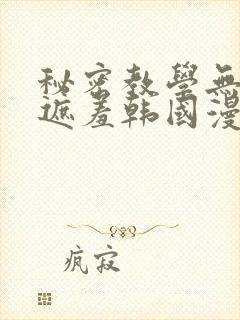 秘密教學無
遮羞韩國漫
疯寂